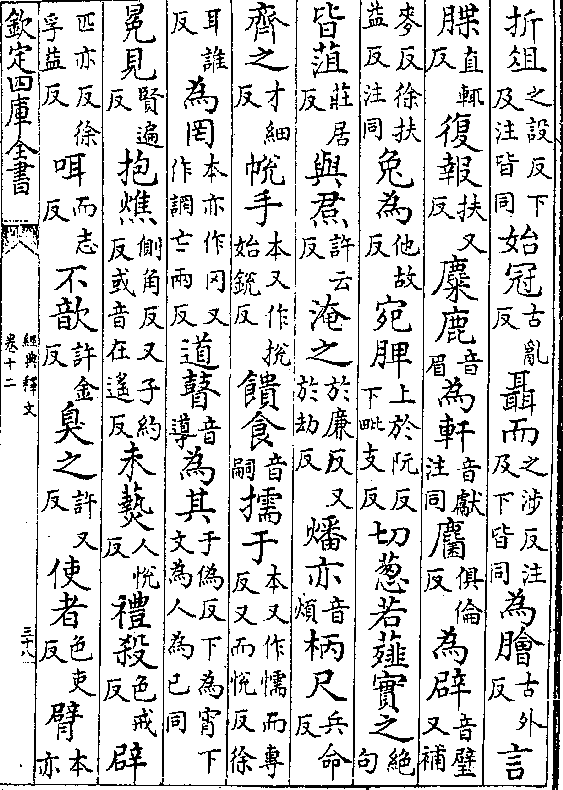 折俎之設反下及注皆同始冠古亂反聶而之涉反注及下皆同為膾古外反言
牒直輒反復報扶又反麋鹿音眉為軒音獻注同麕俱倫反為辟音璧又補
麥反徐扶益反注同兔為他故反宛脾上於阮反下毗支反切蔥若薤實之絕句
皆菹莊居反與焄許云反淹之於廉反又於劫反燔亦音煩柄尺兵命反
齊之才細反帨手本又作挩始銳反饋食音嗣擩于本又作懦而專反又而悅反徐
耳誰反為罔本亦作冈又作調亡兩反道瞽音導為其于偽反下為宵下文為人為已同
冕見賢遍反抱燋側角反又子約反或音在遙反未爇人悅反禮殺色戒反辟
匹亦反徐孚益反咡而志反不歆許金反臭之許又反使者色吏反臂本亦
欽定四庫全書
經典釋文
卷十二
三十八